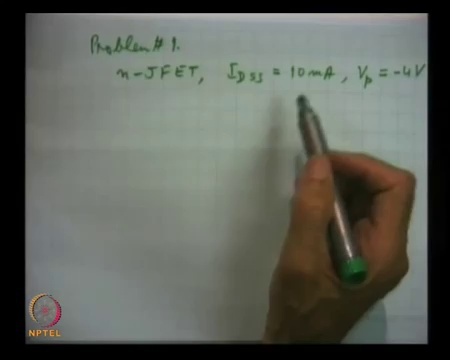 Problem # 1.
n-JFET, IDSS = 10 mA, Vp = -4V
NPTEL